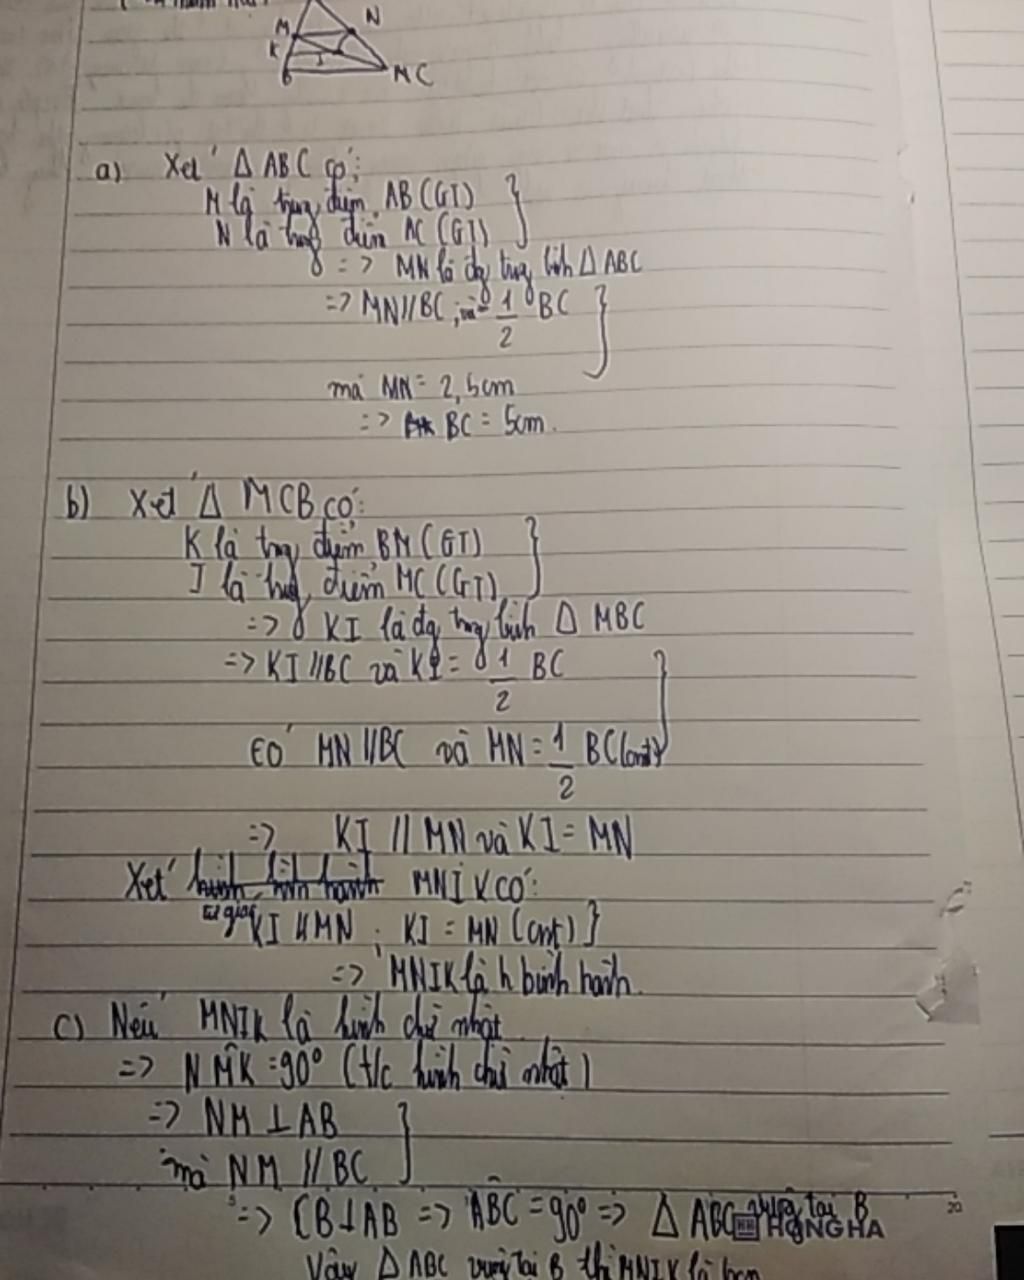 M N
K I
B M C
a) Xét Δ ABC có:
M là trung điểm AB (GT)
N là trung điểm AC (GT)
=> MN là đg trung bình Δ ABC
=> MN // BC, và = 1/2 BC
mà MN = 2,5cm
=> BC = 5cm.
b) Xét Δ MCB có:
K là trung điểm BM (GT)
I là trung điểm MC (GT)
=> KI là đg trung bình Δ MBC
=> KI // BC và KI = 1/2 BC
Có MN // BC và MN = 1/2 BC (cmt)
=> KI // MN và KI = MN
Xét tứ giác MNIK có:
KI // MN ; KI = MN (cmt)
=> MNIK là h bình hành.
c) Nếu MNIK là hình chữ nhật
=> NM̂K = 90° (t/c hình chữ nhật)
=> NM ⊥ AB
mà NM // BC
=> CB ⊥ AB => AB̂C = 90° => Δ ABC vuông tại B
HONG HA
20
Vậy Δ ABC vuông tại B thì MNIK là hcn